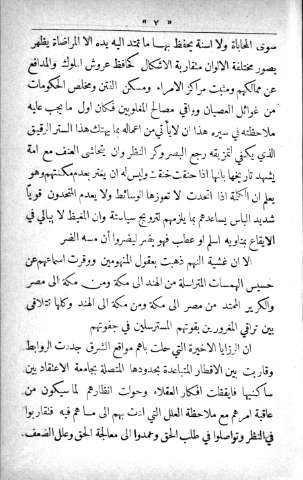 « ٧ »
سوى المحاباة ولا اسنة يحفظ بهـا ما تمتد اليه يده الا المراضاة يظهر
بصور مختلفة الالوان متقاربة الاشكال كحافظ عروش الملوك والمدافع
عن ممالكهم ومثبت مراكز الامراء ومسكن الفتن ومخلص الحكومات
من غوائل العصيان وواقي مصالح المغلوبين فكان اول ما يجب عليه
ملاحظته في سيره هذا ان لا يأتي من اعماله بما يهتك هذا الستر الرقيق
الذي يكفي لتمزيقه رجع البصر وكر النظر وان يتحاشى العنف مع امة
يشهد تاريخها بأنها اذا حنقت خنقت وليس له ان يغتر بعدم مكنتهم وهو
يعلم ان الكلمة اذا اتحدت لا تعوزها الوسائط ولا يعدم المتحدون قويًا
شديد البأس يساعدهم بما يلزمهم لترويج سياستة وان المغيظ لا يبالي في
الايقاع بمناويه اسلم او عطب فهو يضر ليضروا أن مسه الضر
الا ان غشية النهم ذهبت بعقول المنهومين ووقرت اسماعهم عن
حسيس الهمسات المتراسلة من الهند الى مكة ومن مكة الى مصر
والكرير الممتد من مصر الى مكة ومن مكة الى الهند وكلها تتلاقى
بين تراقي المغرورين بقوتهم المسترسلين في جفوتهم
ان الرزايا الاخيرة التي حلت باهم مواقع الشرق جددت الروابط
وقاربت بين الاقطار المتباعدة بحدودها المتصلة بجامعة الاعتقاد بين
ساكنيها فأيقظت افكار العقلاء وحولت انظارهم لما سيكون من
عاقبة امرهم مع ملاحظة العلل التي ادت بهم الى ما هم فيه فتقاربوا
في النظر وتواصلوا في طلب الحق وعمدوا الى معالجة الحق وعلل الضعف